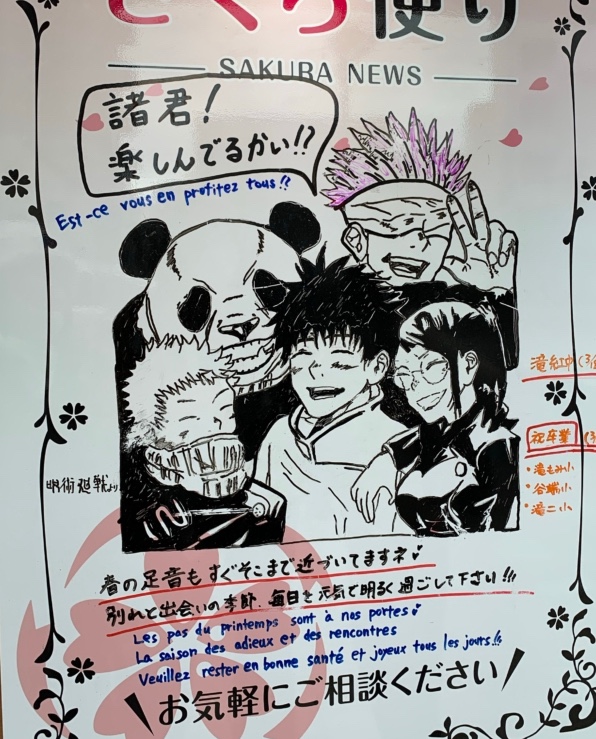 さくら便り
SAKURA NEWS
諸君!
楽しんでるかい!!?
Est-ce vous en profitez tous!?
滝紅中
祝卒業
・滝もみ小
・谷端小
・滝二小
呪術廻戦より
春の足音もすぐそこまで近づいてますネ♪
別れと出会いの季節、毎日を元気で明るく過ごして下さい!!!
Les pas du printemps sont à nos portes♪
La saison des adieux et des rencontres
Veuillez rester en bonne santé et joyeux tous les jours!!
\お気軽にご相談ください/